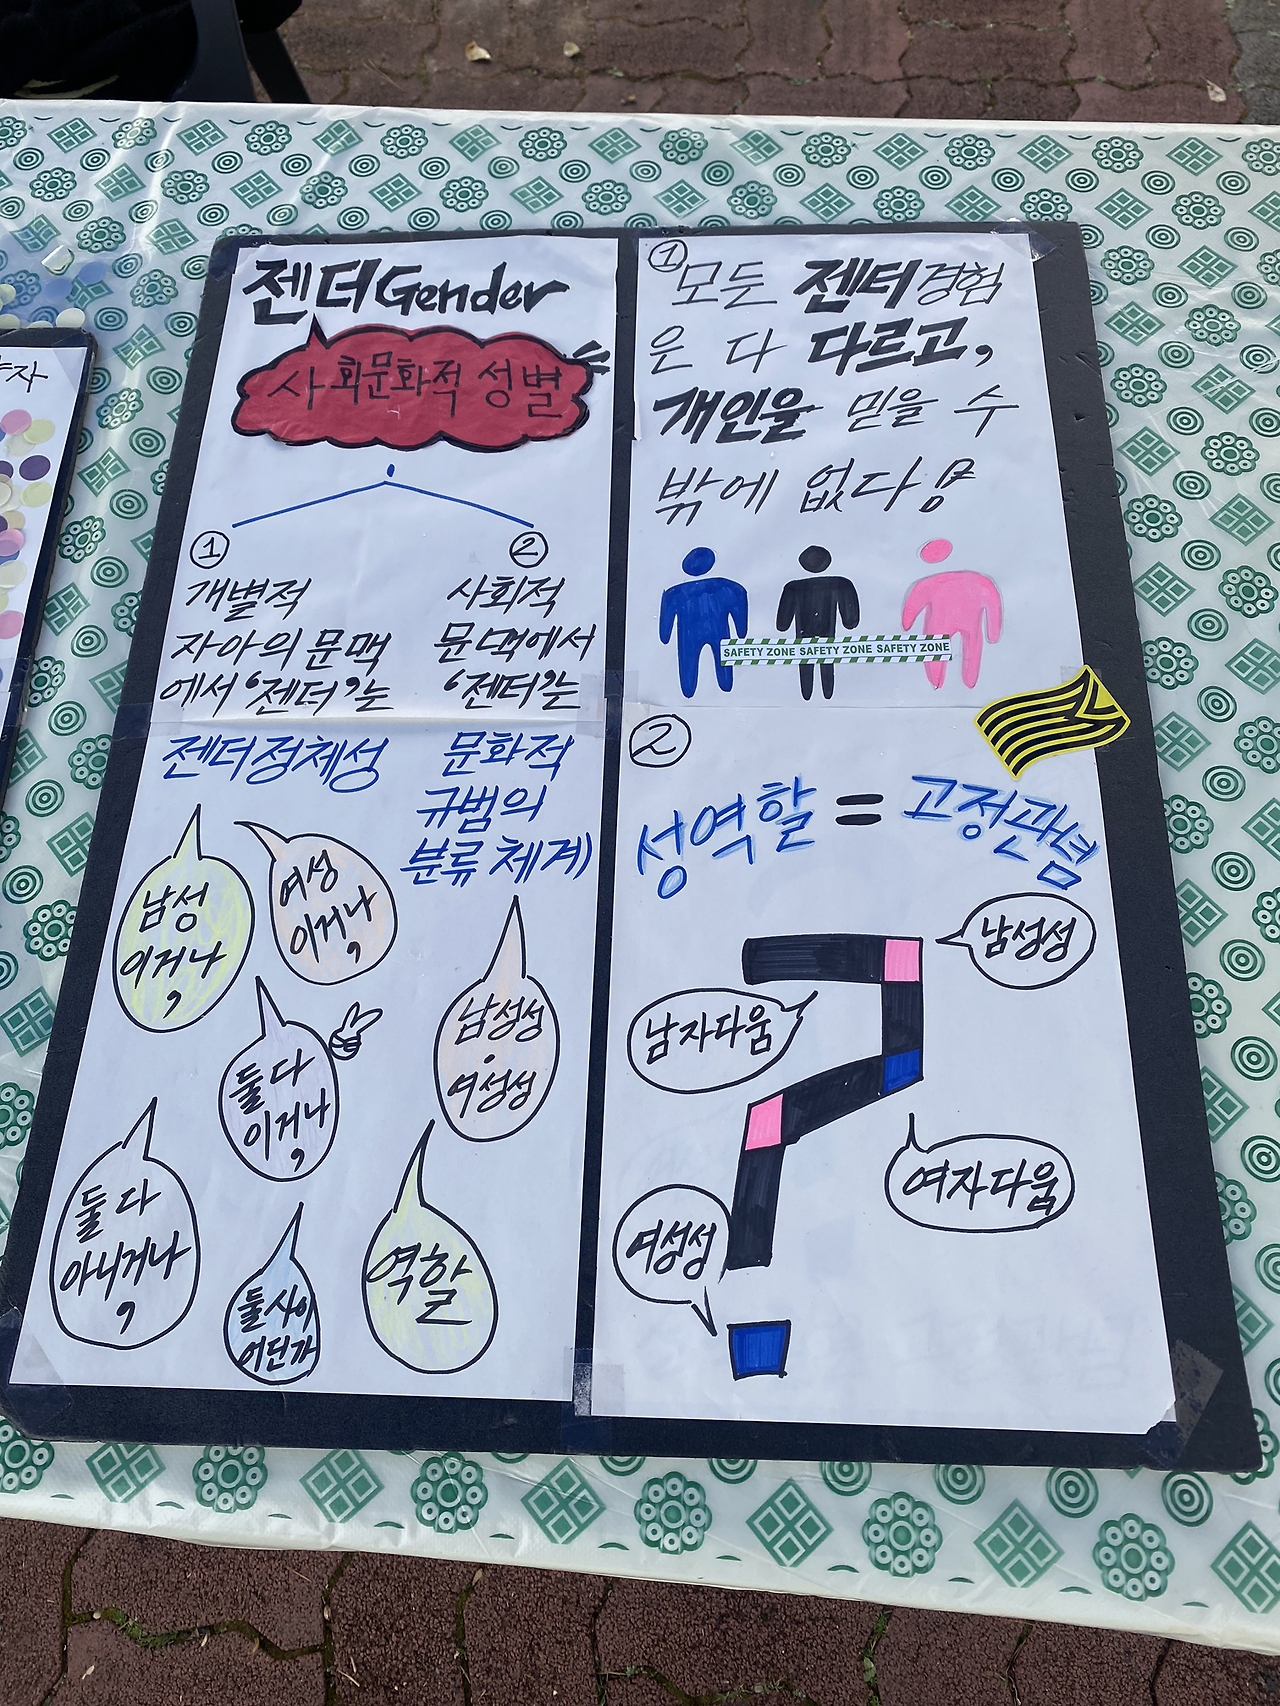 젠더 Gender
사회문화적 성별
①
개별적
자아의 문맥
에서 '젠더'는
젠더정체성
남성
이거나,
여성
이거나,
둘 다
이거나,
둘 다
아니거나,
둘 사이
어딘가
②
사회적
문맥에서
'젠더'는
문화적
규범의
분류 체계
남성성
·
여성성
역할
① 모든 젠더경험
은 다 다르고,
개인을 믿을 수
밖에 없다!
SAFETY ZONE SAFETY ZONE SAFETY ZONE
②
성역할 = 고정관념
남성성
남자다움
여자다움
여성성
자